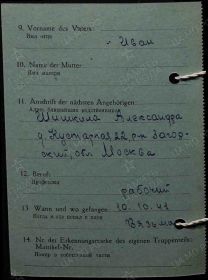 9. Vorname des Vaters:
Имя отца
Иван
10. Name der Mutter:
Имя матери
11. Anschrift der nächsten Angehörigen:
Шишкина Александра
д. Кустарная 22 р-н Загор-
ский, обл. Москва
12. Beruf:
Профессия
рабочий
13. Wann und wo gefangen: 10.10.41
Когда и где попал в плен
Вязьма
14. Nr. der Erkennungsmarke des eigenen Truppenteils: